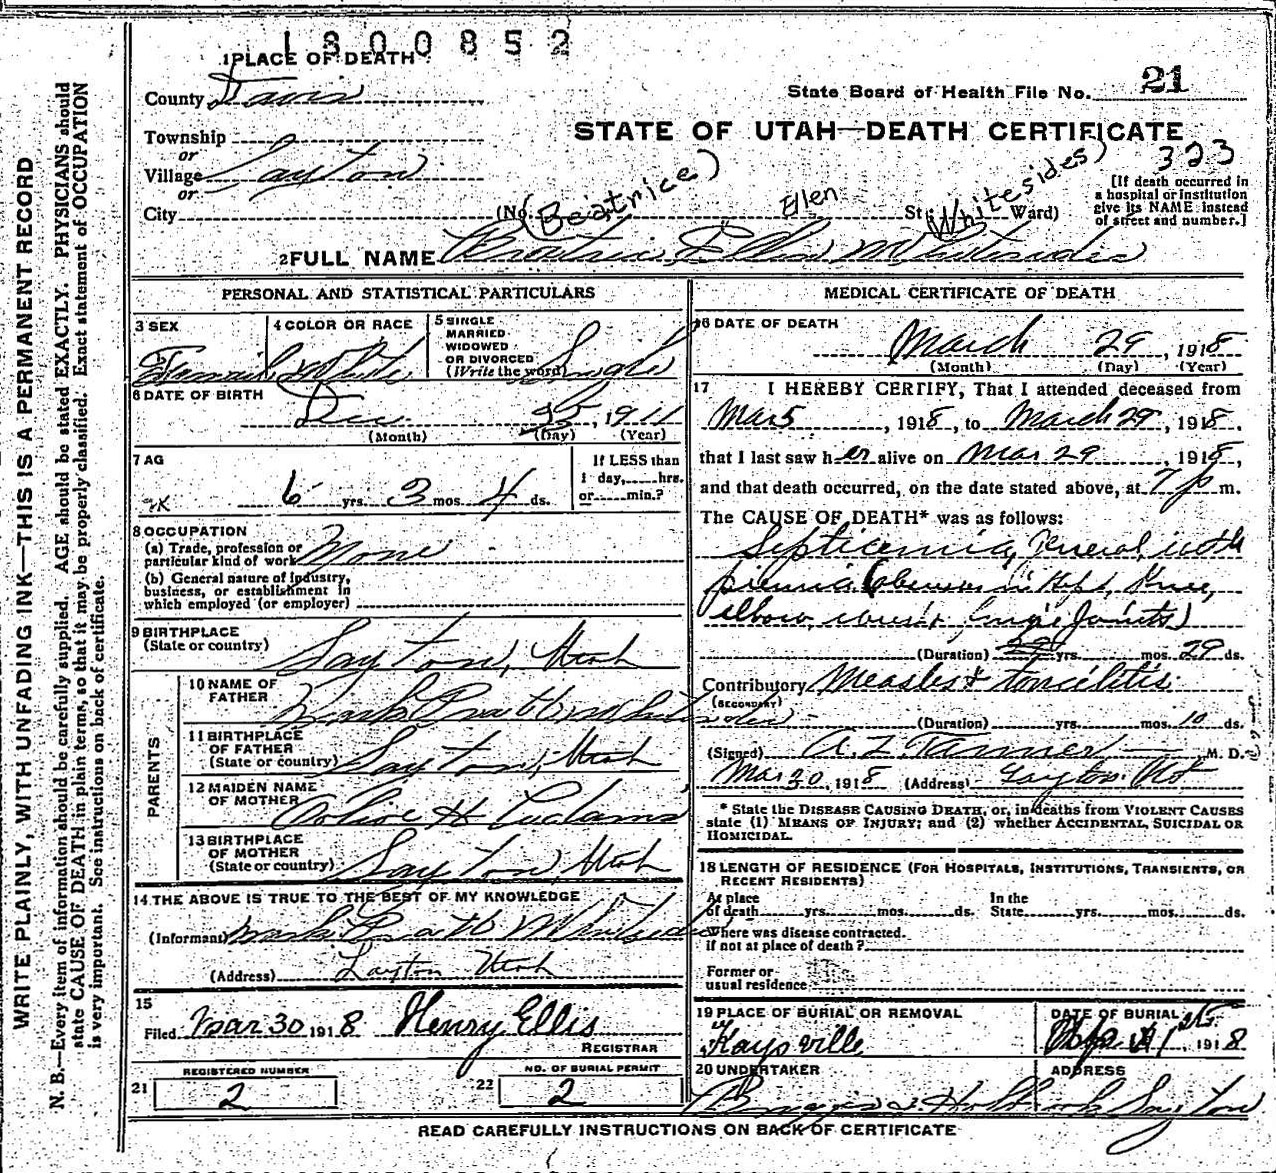 1800852
1 PLACE OF DEATH
County Davis
State Board of Health File No. 21
Township
or
STATE OF UTAH—DEATH CERTIFICATE
Village Layton
or
323
City (No. St.; Ward)
(Beatrice) Ellen Whitesides)
[If death occurred in
a hospital or institution
give its NAME instead
of street and number.]
2 FULL NAME Beatrice Ellen Whitesides
PERSONAL AND STATISTICAL PARTICULARS
3 SEX
Female
4 COLOR OR RACE
White
5 SINGLE
MARRIED
WIDOWED
OR DIVORCED
(Write the word) Single
6 DATE OF BIRTH
Dec 25, 1911
(Month) (Day) (Year)
7 AG
6 yrs. 3 mos. 4 ds.
If LESS than
1 day, hrs.
or min.?
8 OCCUPATION
(a) Trade, profession or
particular kind of work None
(b) General nature of industry,
business, or establishment in
which employed (or employer)
9 BIRTHPLACE
(State or country) Layton, Utah
PARENTS
10 NAME OF
FATHER Mark Pratt Whitesides
11 BIRTHPLACE
OF FATHER
(State or country) Layton, Utah
12 MAIDEN NAME
OF MOTHER Olive H
13 BIRTHPLACE
OF MOTHER
(State or country) Layton, Utah
14 THE ABOVE IS TRUE TO THE BEST OF MY KNOWLEDGE
(Informant) Mark Pratt Whitesides
(Address) Layton Utah
15
Filed Mar 30 1918 Henry Ellis
REGISTRAR
REGISTERED NUMBER
21 2
NO. OF BURIAL PERMIT
22 2
MEDICAL CERTIFICATE OF DEATH
16 DATE OF DEATH
March 29, 1918
(Month) (Day) (Year)
17 I HEREBY CERTIFY, That I attended deceased from
Mar 5, 1918, to March 29, 1918,
that I last saw her alive on Mar 29, 1918,
and that death occurred, on the date stated above, at 7 p m.
The CAUSE OF DEATH* was as follows:
Septicemia, General, with
in Knee,
elbow, Joints)
(Duration) yrs. mos. 29 ds.
Contributory Measles & toncilitis
(SECONDARY)
(Duration) yrs. mos. 10 ds.
(Signed) A Z Tanner M. D.
Mar 30, 1918 (Address) Layton Ut
* State the DISEASE CAUSING DEATH, or, in deaths from VIOLENT CAUSES
state (1) MEANS OF INJURY; and (2) whether ACCIDENTAL, SUICIDAL OR
HOMICIDAL.
18 LENGTH OF RESIDENCE (FOR HOSPITALS, INSTITUTIONS, TRANSIENTS, OR
RECENT RESIDENTS)
At place
of death yrs. mos. ds.
In the
State yrs. mos. ds.
Where was disease contracted.
if not at place of death?
Former or
usual residence
19 PLACE OF BURIAL OR REMOVAL
Kaysville
DATE OF BURIAL
1st 1918
20 UNDERTAKER
ADDRESS
Layton
READ CAREFULLY INSTRUCTIONS ON BACK OF CERTIFICATE
WRITE PLAINLY, WITH UNFADING INK—THIS IS A PERMANENT RECORD
N. B.—Every item of information should be carefully supplied. AGE should be stated EXACTLY. PHYSICIANS should
state CAUSE OF DEATH in plain terms, so that it may be properly classified. Exact statement of OCCUPATION
is very important. See instructions on back of certificate.